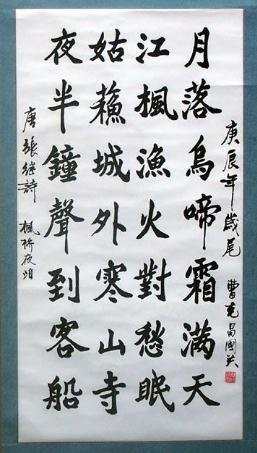 庚辰年歲尾 曹
月落烏啼霜滿天
江楓漁火對愁眠
姑蘓城外寒山寺
夜半鐘聲到客船
唐張繼詩 楓橋夜泊